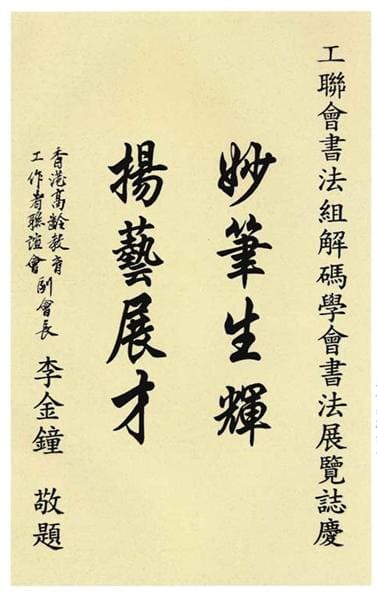 工聯會書法組解碼學會書法展覽誌慶
妙筆生輝
揚藝展才
香港高齡教育
工作者聯誼會副會長 李金鐘 敬題